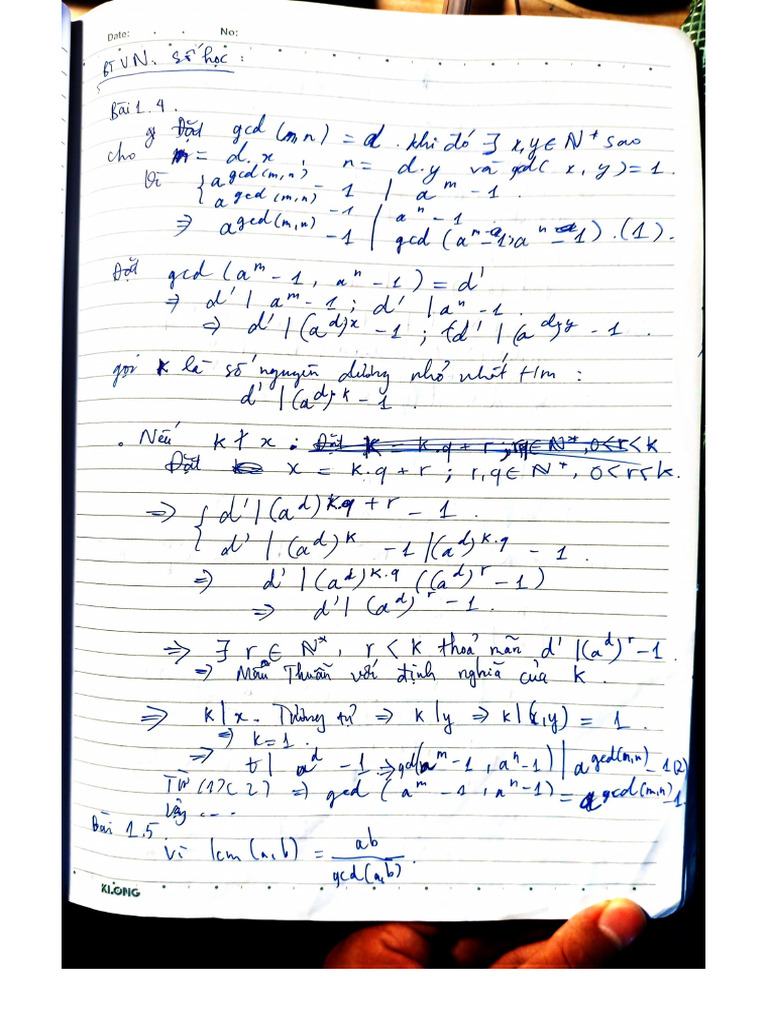 Date: . . No:
BTVN. Số học:
Bài 1.4.
Đặt gcd(m,n) = d. Khi đó ∃ x,y ∈ N+ sao
cho m = d.x n = d.y và gcd(x,y)=1.
Vì { a^gcd(m,n) - 1 | a^m - 1.
a^gcd(m,n) - 1 | a^n - 1
⇒ a^gcd(m,n) - 1 | gcd(a^m - 1, a^n - 1). (1).
Đặt gcd(a^m - 1, a^n - 1) = d'
⇒ d' | a^m - 1; d' | a^n - 1.
⇒ d' | (a^d)^x - 1; d' | (a^d)^y - 1.
gọi k là số nguyên dương nhỏ nhất t/m:
d' | (a^d)^k - 1.
. Nếu k ∤ x: Đặt k = k.q + r; r,q ∈ N*, 0<r<k
Đặt x = k.q + r; r,q ∈ N+, 0<r<k.
⇒ { d' | (a^d)^k.q + r - 1.
d' | (a^d)^k - 1 | (a^d)^k.q - 1.
⇒ d' | (a^d)^k.q ((a^d)^r - 1)
⇒ d' | (a^d)^r - 1.
⇒ ∃ r ∈ N*, r < k thoả mãn d' | (a^d)^r - 1.
⇒ Mâu Thuẫn với định nghĩa của k.
⇒ k | x. Tương tự ⇒ k | y ⇒ k | (x,y) = 1.
⇒ k = 1.
⇒ t | a^d - 1 ⇒ gcd(a^m - 1, a^n - 1) | a^gcd(m,n) - 1 (2)
Từ (1)(2) ⇒ gcd(a^m - 1, a^n - 1) = a^gcd(m,n) - 1.
Vậy ....
Bài 1.5
Vì lcm(a,b) = ab / gcd(a,b).
KLONG